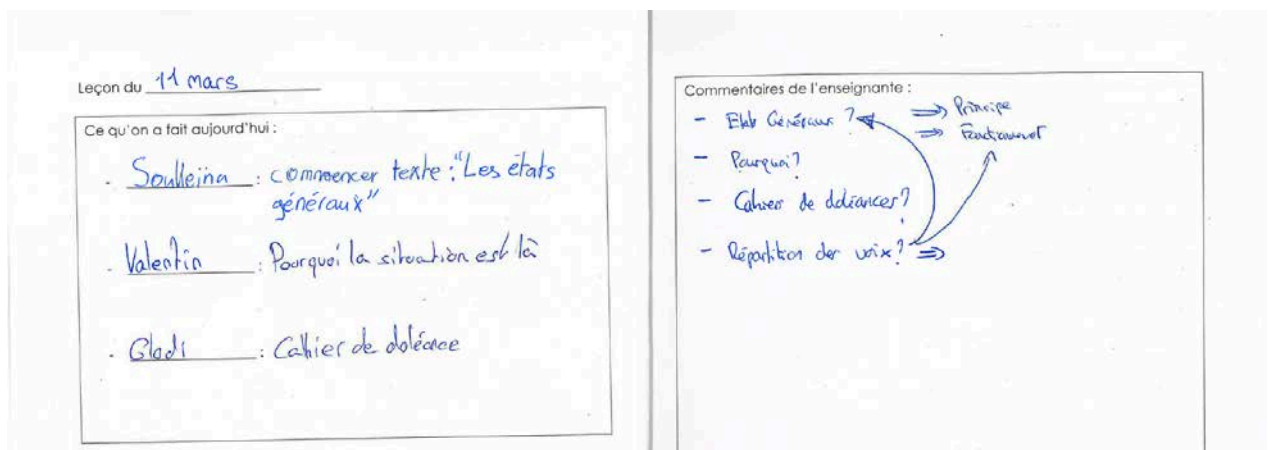 Leçon du 11 mars
Ce qu'on a fait aujourd'hui :
- Soulleïna : commencer texte : "Les états
généraux"
- Valentin : Pourquoi la situation est là
- Gladi : Cahier de doléance
Commentaires de l'enseignante :
- Etats Généraux ? ⇒ Principe
⇒
- Pourquoi ?
- Cahier de doléances ?
- Répartition des voix ? ⇒